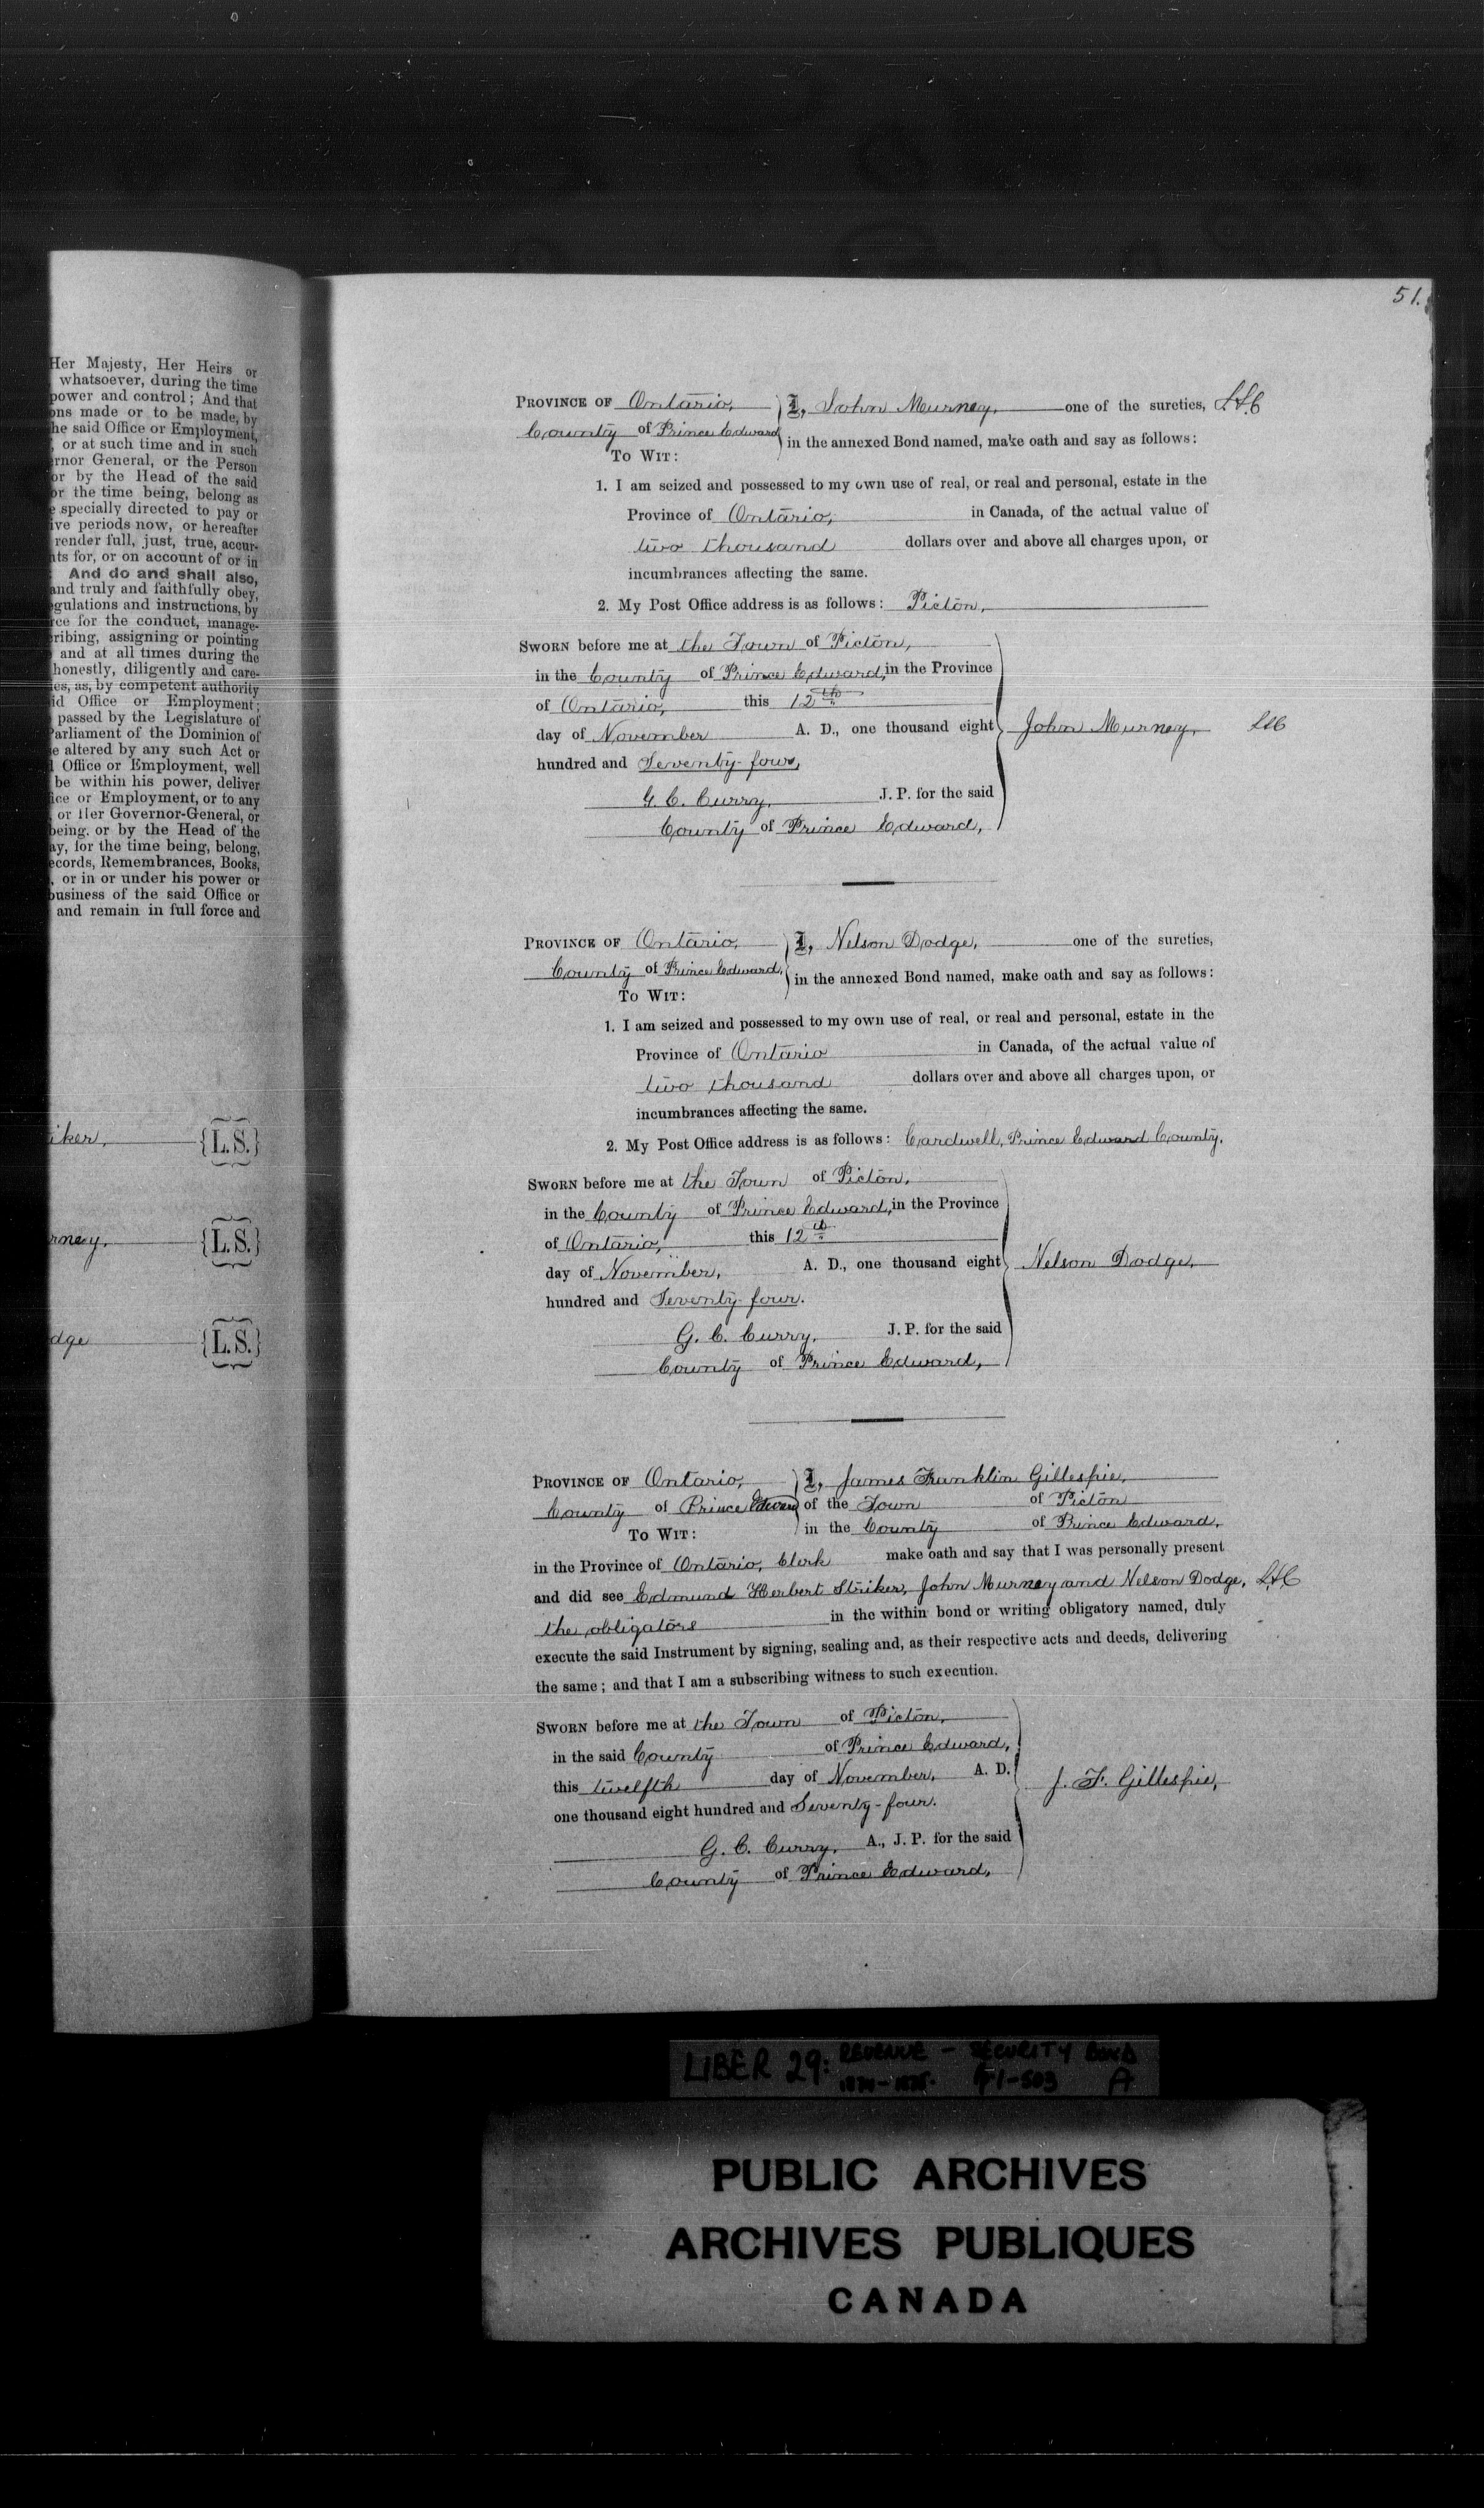 51.
Her Majesty, Her Heirs or
whatsoever, during the time
power and control; And that
ons made or to be made, by
he said Office or Employment,
, or at such time and in such
rnor General, or the Person
or by the Head of the said
or the time being, belong as
e specially directed to pay or
ive periods now, or hereafter
render full, just, true, accur-
nts for, or on account of or in
: And do and shall also,
and truly and faithfully obey,
egulations and instructions, by
rce for the conduct, manage-
cribing, assigning or pointing
and at all times during the
honestly, diligently and care-
ies, as, by competent authority
id Office or Employment;
passed by the Legislature of
Parliament of the Dominion of
e altered by any such Act or
l Office or Employment, well
be within his power, deliver
ice or Employment, or to any
, or Her Governor-General, or
being, or by the Head of the
ay, for the time being, belong,
ecords, Remembrances, Books,
, or in or under his power or
business of the said Office or
and remain in full force and
iker, {L.S.}
rney, {L.S.}
dge {L.S.}
PROVINCE OF Ontario, } I, John Murney, one of the sureties,
County of Prince Edward in the annexed Bond named, make oath and say as follows:
TO WIT:
1. I am seized and possessed to my own use of real, or real and personal, estate in the
Province of Ontario, in Canada, of the actual value of
two thousand dollars over and above all charges upon, or
incumbrances affecting the same.
2. My Post Office address is as follows: Picton,
SWORN before me at the Town of Picton,
in the County of Prince Edward, in the Province
of Ontario, this 12th
day of November A. D., one thousand eight } John Murney,
hundred and Seventy-four,
G. C. Curry, J. P. for the said
County of Prince Edward,
PROVINCE OF Ontario, } I, Nelson Dodge, one of the sureties,
County of Prince Edward, in the annexed Bond named, make oath and say as follows:
TO WIT:
1. I am seized and possessed to my own use of real, or real and personal, estate in the
Province of Ontario in Canada, of the actual value of
two thousand dollars over and above all charges upon, or
incumbrances affecting the same.
2. My Post Office address is as follows: Cardwell, Prince Edward County.
SWORN before me at the Town of Picton,
in the County of Prince Edward, in the Province
of Ontario, this 12th
day of November, A. D., one thousand eight } Nelson Dodge,
hundred and Seventy-four.
G. C. Curry, J. P. for the said
County of Prince Edward,
PROVINCE OF Ontario, } I, James Franklin Gillespie,
County of Prince Edward of the Town of Picton
TO WIT: in the County of Prince Edward,
in the Province of Ontario, Clerk make oath and say that I was personally present
and did see Edmund Herbert Striker, John Murney and Nelson Dodge,
the obligators in the within bond or writing obligatory named, duly
execute the said Instrument by signing, sealing and, as their respective acts and deeds, delivering
the same; and that I am a subscribing witness to such execution.
SWORN before me at the Town of Picton,
in the said County of Prince Edward,
this twelfth day of November, A. D. } J. F. Gillespie,
one thousand eight hundred and Seventy-four.
G. C. Curry, A., J. P. for the said
County of Prince Edward,
LIBER 29: REVENUE - SECURITY BOND
A
PUBLIC ARCHIVES
ARCHIVES PUBLIQUES
CANADA